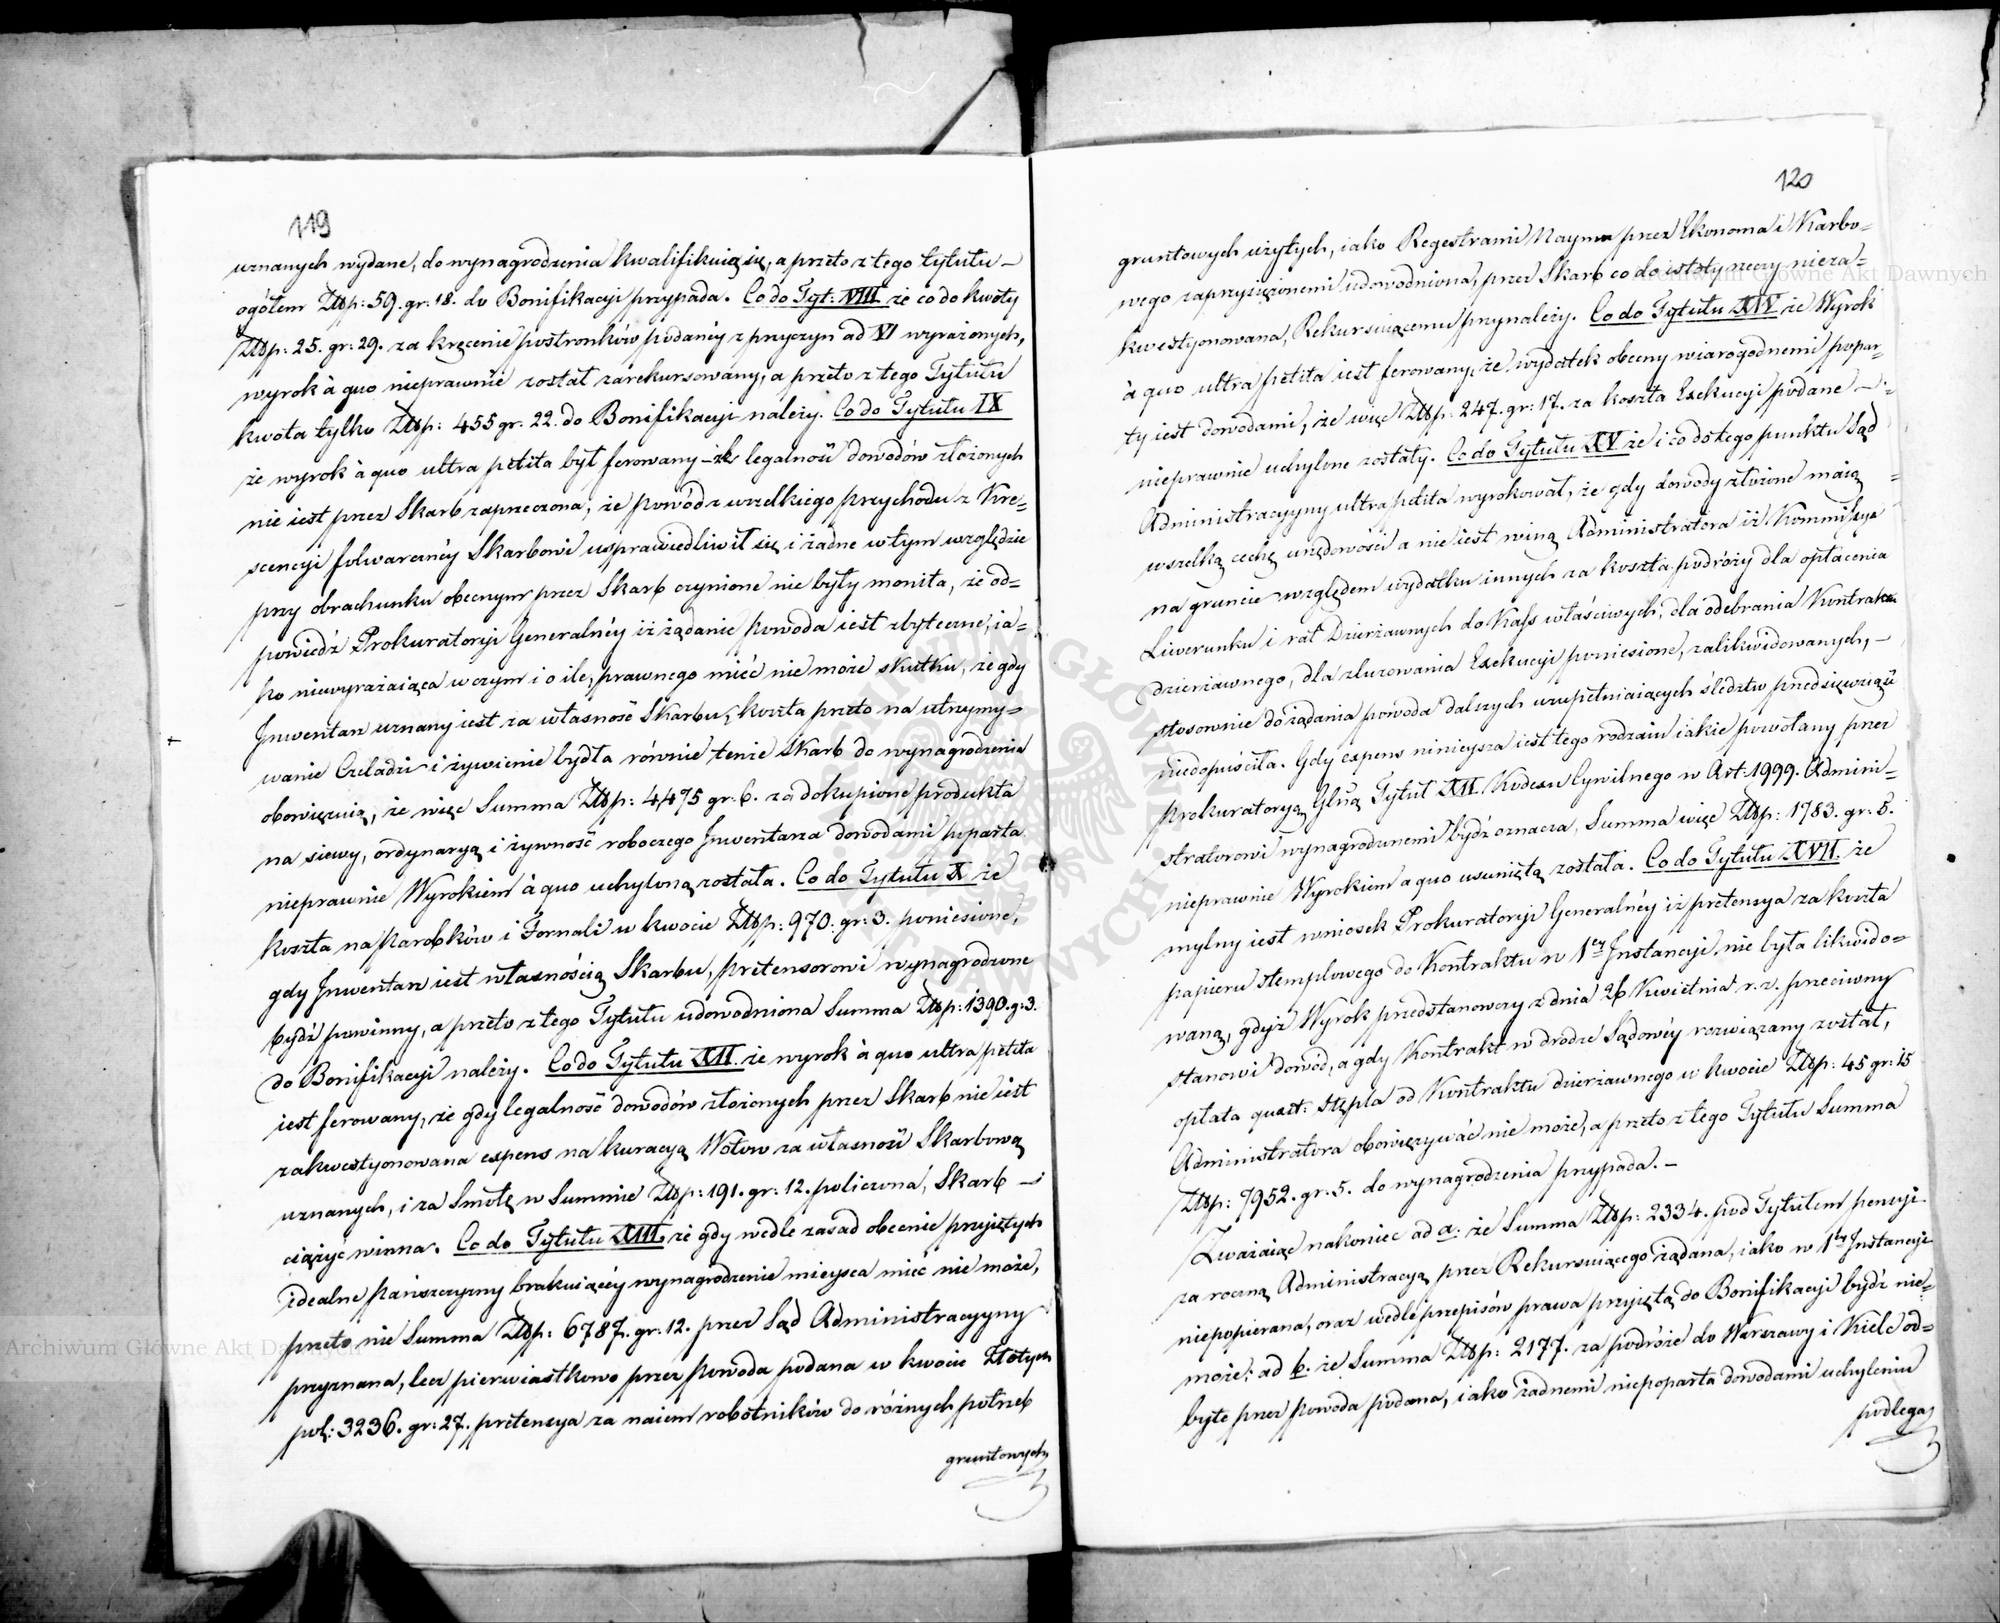 119
uznanych wydane, do wynagrodzenia kwalifikuią się, a przeto z tego tytułu –
ogółem Złłp: 59. gr: 18. do Bonifikacyi przypada. Co do Tyt: VIII że co do kwoty
Złłp: 25. gr: 29. za kręcenie postronków podanéy z przyczyn ad VI wyrażonych,
wyrok à quo nieprawnie został zarekursowany, a przeto z tego Tytułu
kwota tylko Złłp: 455 gr: 22. do Bonifikacyi należy. Co do Tytułu IX
że wyrok à quo ultra petita był ferowany – że legalność dowodów złożonych
nie iest przez Skarb zaprzeczona, że powód z wszelkiego przychodu z Kre=
scencyi folwarcznéy Skarbowi usprawiedliwił się i żadne w tym względzie
przy obrachunku obecnym przez Skarb czynione nie były monita, że od=
powiedź Prokuratoryi Generalnéy iż żądanie powoda iest zbyteczne, ia=
ko niewyrażaiąca w czym i o ile, prawnego mieć nie może skutku, że gdy
Inwentarz uznany iest za własność Skarbu, koszta przeto na utrzymy=
wanie Czeladzi i żywienie bydła równie tenże Skarb do wynagrodzenia
obowięzuią, że więc Summa Złłp: 4475 gr: 6. za dokupione produkta
na siewy, ordynaryą i żywność roboczego Inwentarza dowodami poparta
nieprawnie Wyrokiem à quo uchyloną została. Co do Tytułu X że
koszta na Parobków i Fornali w kwocie Złłp: 970. gr: 3. poniesione,
gdy Inwentarz iest własnością Skarbu, pretensorowi wynagrodzone
bydź powinny, a przeto z tego Tytułu udowodniona Summa Złłp: 1390. g: 3.
do Bonifikacyi należy. Co do Tytułu XII że wyrok à quo ultra petita
iest ferowany, że gdy legalność dowodów złożonych przez Skarb nie iest
zakwestyonowana expens na kuracyą Wołow za własność Skarbową
uznanych, i za Smołę w Summie Złłp: 191. gr: 12. policzona, Skarb –
ciążyć winna. Co do Tytułu XIII. że gdy wedle zasad obecnie przyiętych
idealne Pańszczyzny brakuiącéy wynagrodzenie mieysca mieć nie może,
przeto nie Summa Złłp: 6787. gr: 12. przez Sąd Administracyyny
przyznana, lecz pierwiastkowo przez Powoda podana w kwocie Złotych
pol: 3236. gr: 27. pretensya za naiem robotników do różnych potrzeb
gruntowych
120
gruntowych użytych, iako Regestrami Naymu przez Ekonoma i Karbo=
wego zaprzysiężonemi udowodniona, przez Skarb co do istoty rzeczy nieza=
kwestyonowana, Rekursuiącemu przynależy. Co do Tytułu XIV że Wyrok
à quo ultra petita iest ferowany, że wydatek obecny wiarogodnemi popar=
ty iest dowodami, że więc Złłp: 247. gr: 17. za koszta Exekucyi podane –
nieprawnie uchylone zostały. Co do Tytułu XV że i co do tego punktu Sąd
Administracyyny ultra petita wyrokował, że gdy dowody złożone maią
wszelką cechę urzędowości a nie iest winą Administratora iż Kommissya
na gruncie względem wydatku innych za koszta podróży dla opłacenia
Liwerunku i rat Dzierżawnych do Kass właściwych, dla odebrania Kontraktu
dzierżawnego, dla zluzowania Exekucyi poniesione, zalikwidowanych, –
stosownie do żądania powoda dalszych uzupełniaiących śledztw przedsięwziąść
niedopuściła. Gdy expens ninieysza iest tego rodzaiu iakie powołany przez
Prokuratoryą Glną Tytuł XII Kodexu Cywilnego w Art: 1999. Admini=
stratorowi wynagrodzonemi bydź oznacza, Summa więc Złłp: 1783. gr: 5.
nieprawnie Wyrokiem a quo usuniętą została. Co do Tytułu XVII. że
mylny iest wniosek Prokuratoryi Generalnéy iż pretensya za koszta
papieru stemplowego do Kontraktu w 1éy Instancyi nie była likwido=
waną, gdyż Wyrok przedstanowczy z dnia 26 Kwietnia r. z. przeciwny
stanowi dowód, a gdy Kontrakt w drodze Sądowéy rozwiązany został,
opłata quaest: Stępla od Kontraktu dzierżawnego w kwocie Złłp: 45 gr: 15
Administratora obowięzywać nie może, a przeto z tego Tytułu Summa
Złłp: 7952. gr: 5. do wynagrodzenia przypada. –
Zważaiąc nakoniec ad a: że Summa Złłp: 2334. pod Tytułem pensyi
za roczną Administracyą przez Rekursuiącego żądana, iako w 1éy Instancyi
niepopierana, oraz wedle przepisów prawa przyiętą do Bonifikacyi bydź nie=
może: ad b. że Summa Złłp: 2177. za podróże do Warszawy i Kielc od=
byte przez Powoda podana, iako żadnemi niepoparta dowodami uchyleniu
podlega
Archiwum Główne Akt Dawnych
Archiwum Główne Akt Dawnych